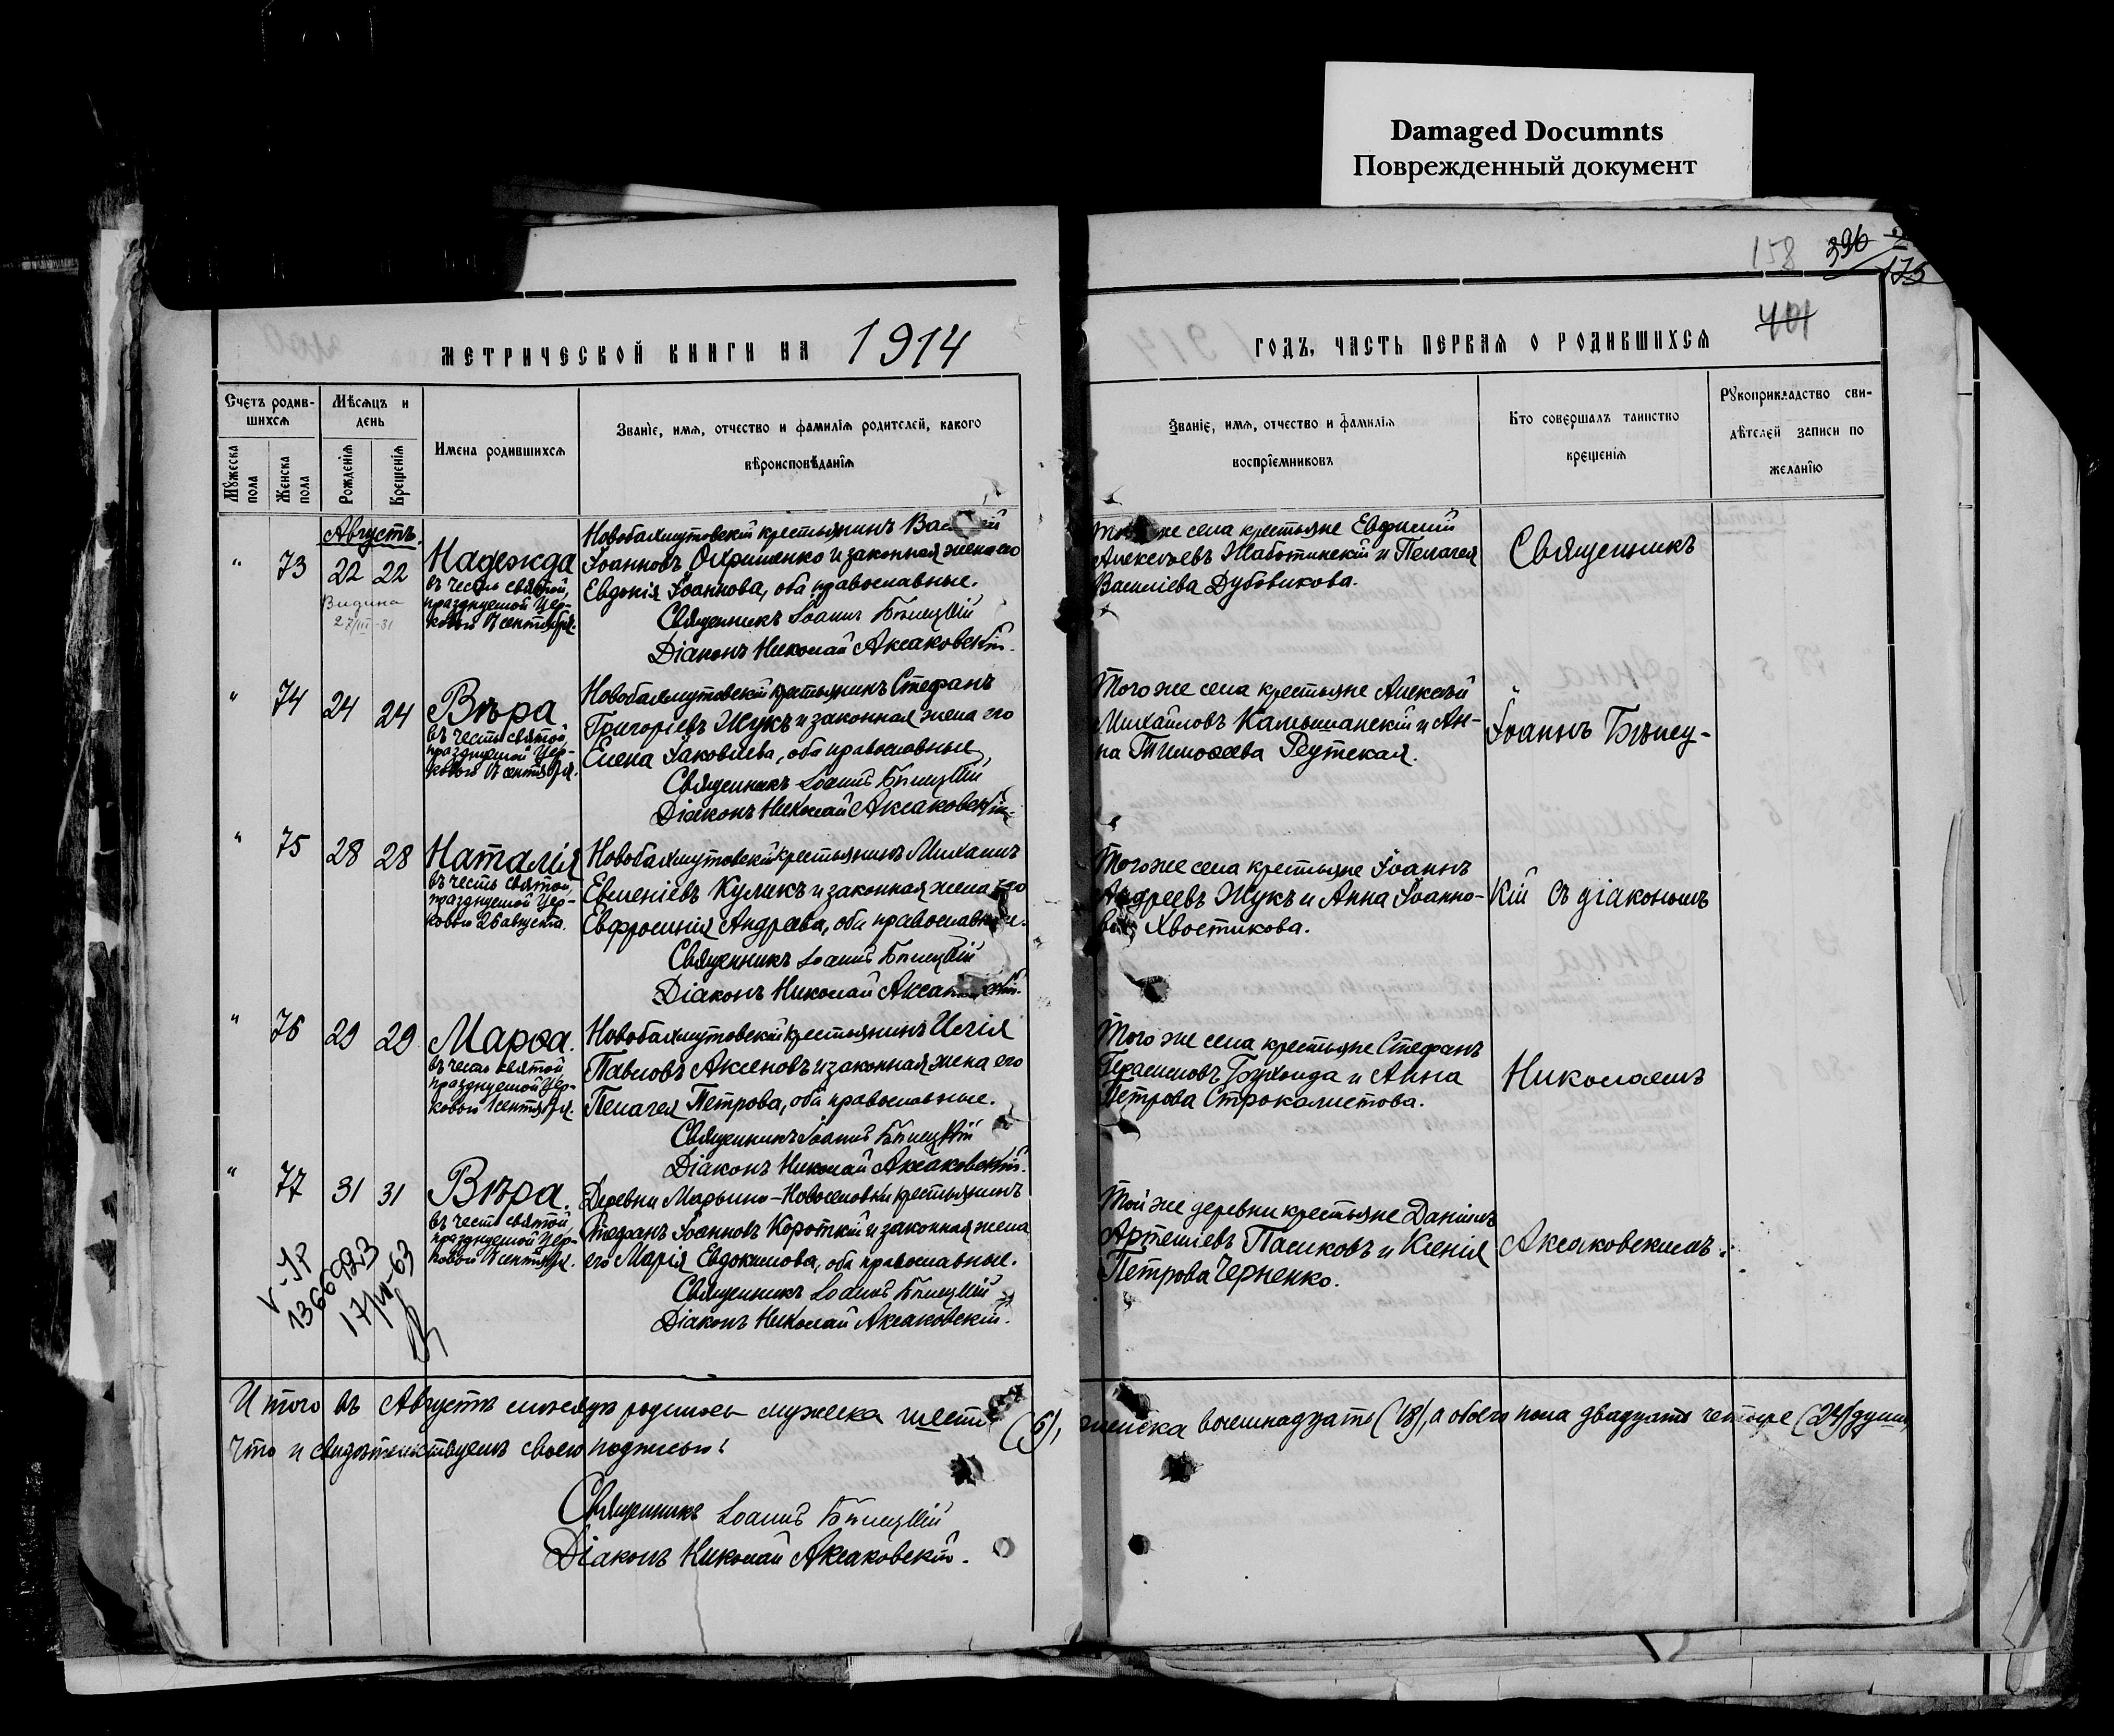 Damaged Documnts
Поврежденный документ
158 396
175
401
МЕТРИЧЕСКОЙ КНИГИ НА 1914
ГОДЪ, ЧАСТЬ ПЕРВАЯ О РОДИВШИХСЯ
Счетъ родив-
шихся
Мѣсяцъ и
день
Мужеска
пола
Женска
пола
Рожденія
Крещенія
Имена родившихся
Званіе, имя, отчество и фамилія родителей, какого
вѣроисповѣданія
Званіе, имя, отчество и фамилія
воспріемниковъ
Кто совершалъ таинство
крещенія
Рукоприкладство сви-
дѣтелей записи по
желанію
Августъ.
" 73 22 22 Надежда
въ честь святой,
празднуемой Цер-
ковью 17 сентября.
Видана
27/III-31
Новобахмутовскій крестьянинъ
Іоанновъ Охрименко и законная жена его
Евдокія Іоаннова, оба православные.
Священникъ Іоаннъ Бѣлецкій
Діаконъ Николай Аксаковскій.
же села крестьяне Евфимій
Алексѣевъ Жаботинскій и Пелагея
Василіева Дубовикова.
Священникъ
" 74 24 24 Вѣра
въ честь святой,
празднуемой Цер-
ковью 17 сентября.
Новобахмутовскій крестьянинъ Стефанъ
Григоріевъ Жукъ и законная жена его
Елена Іаковлева, оба православные
Священникъ Іоаннъ Бѣлецкій
Діаконъ Николай Аксаковскій.
Того же села крестьяне Алексѣй
Михайловъ Камышанскій и Ан-
на Тимоѳеева Реутская.
Іоаннъ Бѣлец-
" 75 28 28 Наталія
въ честь святой,
празднуемой Цер-
ковью 26 августа.
Новобахмутовскій крестьянинъ Михаилъ
Евменіевъ Куликъ и законная жена его
Евфросинія Андреева, оба православные.
Священникъ Іоаннъ Бѣлецкій
Діаконъ Николай
Того же села крестьяне Іоаннъ
Андреевъ Жукъ и Анна Іоанно-
ва Хвостикова.
кій съ діакономъ
" 76 29 29 Марѳа.
въ честь святой
празднуемой Цер-
ковью 1 сентября.
Новобахмутовскій крестьянинъ Исаія
Павловъ Аксеновъ и законная жена его
Пелагея Петрова, оба православные.
Священникъ Іоаннъ Бѣлецкій
Діаконъ Николай Аксаковскій.
Того же села крестьяне Стефанъ
Герасимовъ и Анна
Петрова Строкалистова.
Николаемъ
" 77 31 31 Вѣра.
въ честь святой,
празднуемой Цер-
ковью 17 сентября.
V-ЯР
1366923
17/VI-63
Деревни Марьино-Новоселовки крестьянинъ
Стефанъ Іоанновъ Короткій и законная жена
его Марія Евдокимова, оба православные.
Священникъ Іоаннъ Бѣлецкій
Діаконъ Николай Аксаковскій.
Той же деревни крестьяне Даніилъ
Артеміевъ Пасиковъ и Ксенія
Петрова Черненко.
Аксаковскимъ.
Итого въ Августѣ мѣсяцѣ родилось мужеска шесть (6), женска восемнадцать (18), а обоего пола двадцать четыре (24) души,
что и свидѣтельствуемъ своею подписью:
Священникъ Іоаннъ Бѣлецкій
Діаконъ Николай Аксаковскій.